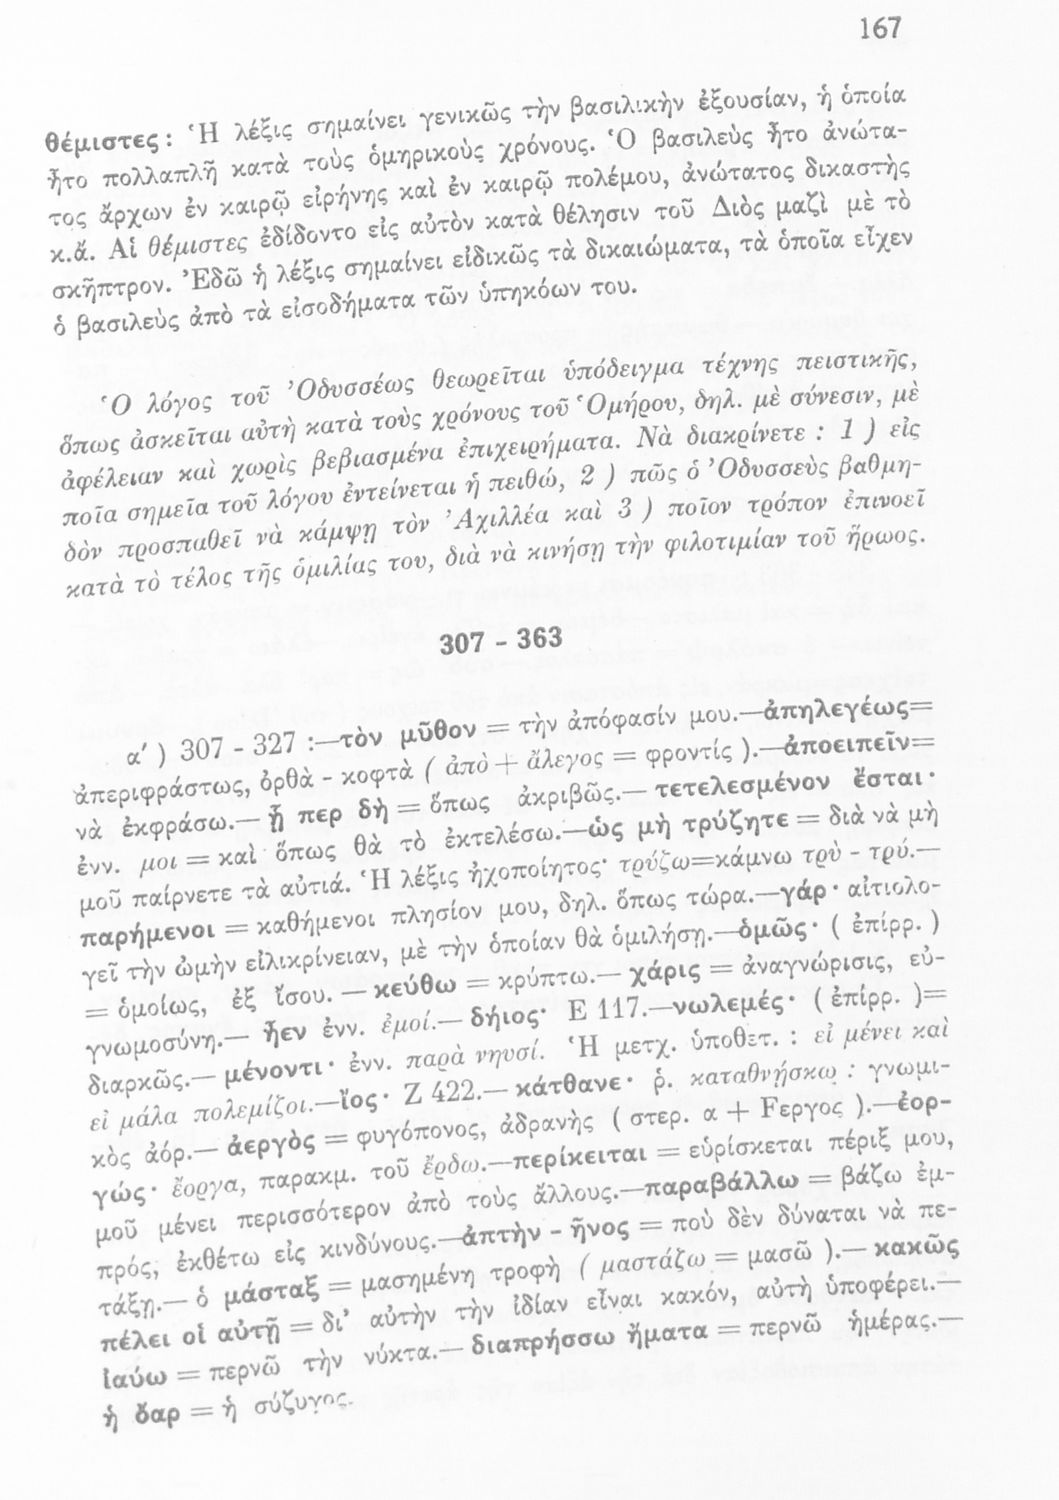 167
θέμιστες : Ἡ λέξις σημαίνει γενικῶς τὴν βασιλικὴν ἐξουσίαν, ἡ ὁποία
ἦτο πολλαπλῆ κατὰ τοὺς ὁμηρικοὺς χρόνους. Ὁ βασιλεὺς ἦτο ἀνώτα-
τος ἄρχων ἐν καιρῷ εἰρήνης καὶ ἐν καιρῷ πολέμου, ἀνώτατος δικαστὴς
κ.ἄ. Αἱ θέμιστες ἐδίδοντο εἰς αὐτὸν κατὰ θέλησιν τοῦ Διὸς μαζὶ μὲ τὸ
σκῆπτρον. Ἐδῶ ἡ λέξις σημαίνει εἰδικῶς τὰ δικαιώματα, τὰ ὁποῖα εἶχεν
ὁ βασιλεὺς ἀπὸ τὰ εἰσοδήματα τῶν ὑπηκόων του.
Ὁ λόγος τοῦ Ὀδυσσέως θεωρεῖται ὑπόδειγμα τέχνης πειστικῆς,
ὅπως ἀσκεῖται αὐτὴ κατὰ τοὺς χρόνους τοῦ Ὁμήρου, δηλ. μὲ σύνεσιν, μὲ
ἀφέλειαν καὶ χωρὶς βεβιασμένα ἐπιχειρήματα. Νὰ διακρίνετε : 1 ) εἰς
ποῖα σημεῖα τοῦ λόγου ἐντείνεται ἡ πειθώ, 2 ) πῶς ὁ Ὀδυσσεὺς βαθμη-
δὸν προσπαθεῖ νὰ κάμψῃ τὸν Ἀχιλλέα καὶ 3 ) ποῖον τρόπον ἐπινοεῖ
κατὰ τὸ τέλος τῆς ὁμιλίας του, διὰ νὰ κινήσῃ τὴν φιλοτιμίαν τοῦ ἥρωος.
307 - 363
α′ ) 307 - 327 :—τὸν μῦθον = τὴν ἀπόφασίν μου.—ἀπηλεγέως=
ἀπεριφράστως, ὀρθὰ - κοφτὰ ( ἀπὸ + ἄλεγος = φροντίς ).—ἀποειπεῖν=
νὰ ἐκφράσω.— ᾗ περ δὴ = ὅπως ἀκριβῶς.— τετελεσμένον ἔσται·
ἐνν. μοι = καὶ ὅπως θὰ τὸ ἐκτελέσω.—ὡς μὴ τρύζητε = διὰ νὰ μὴ
μοῦ παίρνετε τὰ αὐτιά. Ἡ λέξις ἠχοποίητος· τρύζω=κάμνω τρὺ - τρύ.—
παρήμενοι = καθήμενοι πλησίον μου, δηλ. ὅπως τώρα.—γάρ· αἰτιολο-
γεῖ τὴν ὠμὴν εἰλικρίνειαν, μὲ τὴν ὁποίαν θὰ ὁμιλήσῃ.—ὁμῶς· ( ἐπίρρ. )
= ὁμοίως, ἐξ ἴσου. — κεύθω = κρύπτω.— χάρις = ἀναγνώρισις, εὐ-
γνωμοσύνη.— ἦεν ἐνν. ἐμοί.— δήιος· Ε 117.—νωλεμές· ( ἐπίρρ. )=
διαρκῶς.— μένοντι· ἐνν. παρὰ νηυσί. Ἡ μετχ. ὑποθετ. : εἰ μένει καὶ
εἰ μάλα πολεμίζοι.—ἴος· Ζ 422.— κάτθανε· ῥ. καταθνήσκω : γνωμι-
κὸς ἀόρ.— ἀεργὸς = φυγόπονος, ἀδρανὴς ( στερ. α + Fεργος ).—ἐορ-
γώς· ἔοργα, παρακμ. τοῦ ἔρδω.—περίκειται = εὑρίσκεται πέριξ μου,
μοῦ μένει περισσότερον ἀπὸ τοὺς ἄλλους.—παραβάλλω = βάζω ἐμ-
πρός, ἐκθέτω εἰς κινδύνους.—ἀπτὴν - ῆνος = ποὺ δὲν δύναται νὰ πε-
τάξῃ.— ὁ μάσταξ = μασημένη τροφὴ ( μαστάζω = μασῶ ).— κακῶς
πέλει οἱ αὐτῇ = δι’ αὐτὴν τὴν ἰδίαν εἶναι κακόν, αὐτὴ ὑποφέρει.—
ἰαύω = περνῶ τὴν νύκτα.— διαπρήσσω ἤματα = περνῶ ἡμέρας.—
ἡ ὄαρ = ἡ σύζυγος.